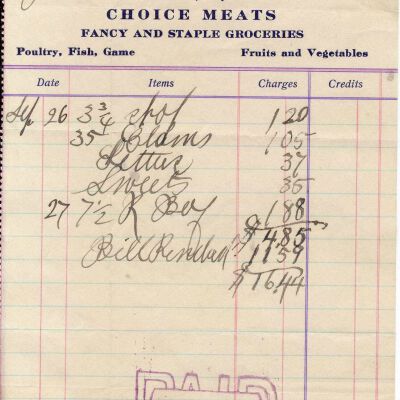 CHOICE MEATS
FANCY AND STAPLE GROCERIES
Poultry, Fish, Game Fruits and Vegetables
Date Items Charges Credits
26 3 3/4 120
35 Clams 105
Lettus 37
Sweets 35
27 7 1/2 R 188
$ 4.85
Bill Rendered 11 59
$ 16.44
PAID